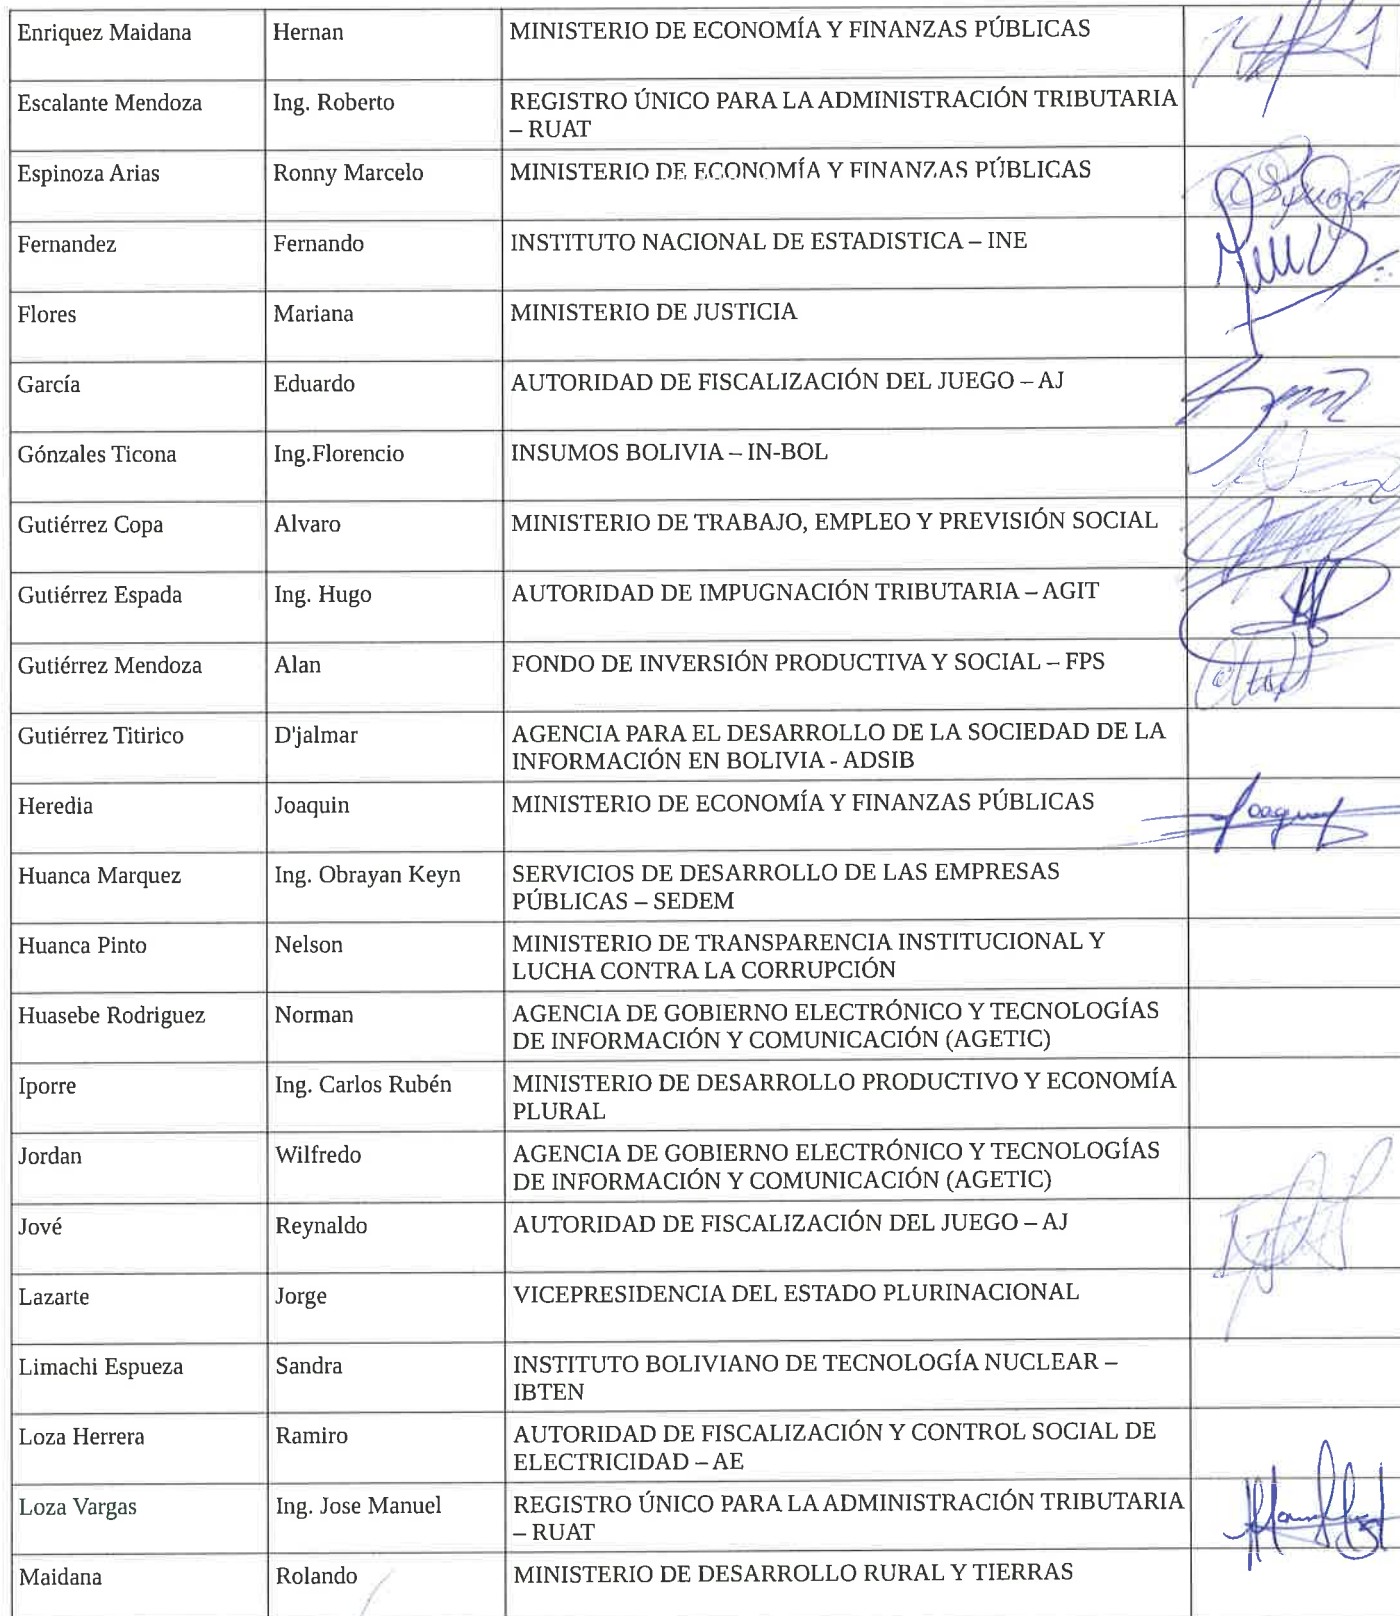 Enriquez Maidana Hernan MINISTERIO DE ECONOMÍA Y FINANZAS PÚBLICAS
Escalante Mendoza Ing. Roberto REGISTRO ÚNICO PARA LA ADMINISTRACIÓN TRIBUTARIA
– RUAT
Espinoza Arias Ronny Marcelo MINISTERIO DE ECONOMÍA Y FINANZAS PÚBLICAS
Fernandez Fernando INSTITUTO NACIONAL DE ESTADISTICA – INE
Flores Mariana MINISTERIO DE JUSTICIA
García Eduardo AUTORIDAD DE FISCALIZACIÓN DEL JUEGO – AJ
Gónzales Ticona Ing.Florencio INSUMOS BOLIVIA – IN-BOL
Gutiérrez Copa Alvaro MINISTERIO DE TRABAJO, EMPLEO Y PREVISIÓN SOCIAL
Gutiérrez Espada Ing. Hugo AUTORIDAD DE IMPUGNACIÓN TRIBUTARIA – AGIT
Gutiérrez Mendoza Alan FONDO DE INVERSIÓN PRODUCTIVA Y SOCIAL – FPS
Gutiérrez Titirico D'jalmar AGENCIA PARA EL DESARROLLO DE LA SOCIEDAD DE LA
INFORMACIÓN EN BOLIVIA - ADSIB
Heredia Joaquin MINISTERIO DE ECONOMÍA Y FINANZAS PÚBLICAS
Huanca Marquez Ing. Obrayan Keyn SERVICIOS DE DESARROLLO DE LAS EMPRESAS
PÚBLICAS – SEDEM
Huanca Pinto Nelson MINISTERIO DE TRANSPARENCIA INSTITUCIONAL Y
LUCHA CONTRA LA CORRUPCIÓN
Huasebe Rodriguez Norman AGENCIA DE GOBIERNO ELECTRÓNICO Y TECNOLOGÍAS
DE INFORMACIÓN Y COMUNICACIÓN (AGETIC)
Iporre Ing. Carlos Rubén MINISTERIO DE DESARROLLO PRODUCTIVO Y ECONOMÍA
PLURAL
Jordan Wilfredo AGENCIA DE GOBIERNO ELECTRÓNICO Y TECNOLOGÍAS
DE INFORMACIÓN Y COMUNICACIÓN (AGETIC)
Jové Reynaldo AUTORIDAD DE FISCALIZACIÓN DEL JUEGO – AJ
Lazarte Jorge VICEPRESIDENCIA DEL ESTADO PLURINACIONAL
Limachi Espueza Sandra INSTITUTO BOLIVIANO DE TECNOLOGÍA NUCLEAR –
IBTEN
Loza Herrera Ramiro AUTORIDAD DE FISCALIZACIÓN Y CONTROL SOCIAL DE
ELECTRICIDAD – AE
Loza Vargas Ing. Jose Manuel REGISTRO ÚNICO PARA LA ADMINISTRACIÓN TRIBUTARIA
– RUAT
Maidana Rolando MINISTERIO DE DESARROLLO RURAL Y TIERRAS